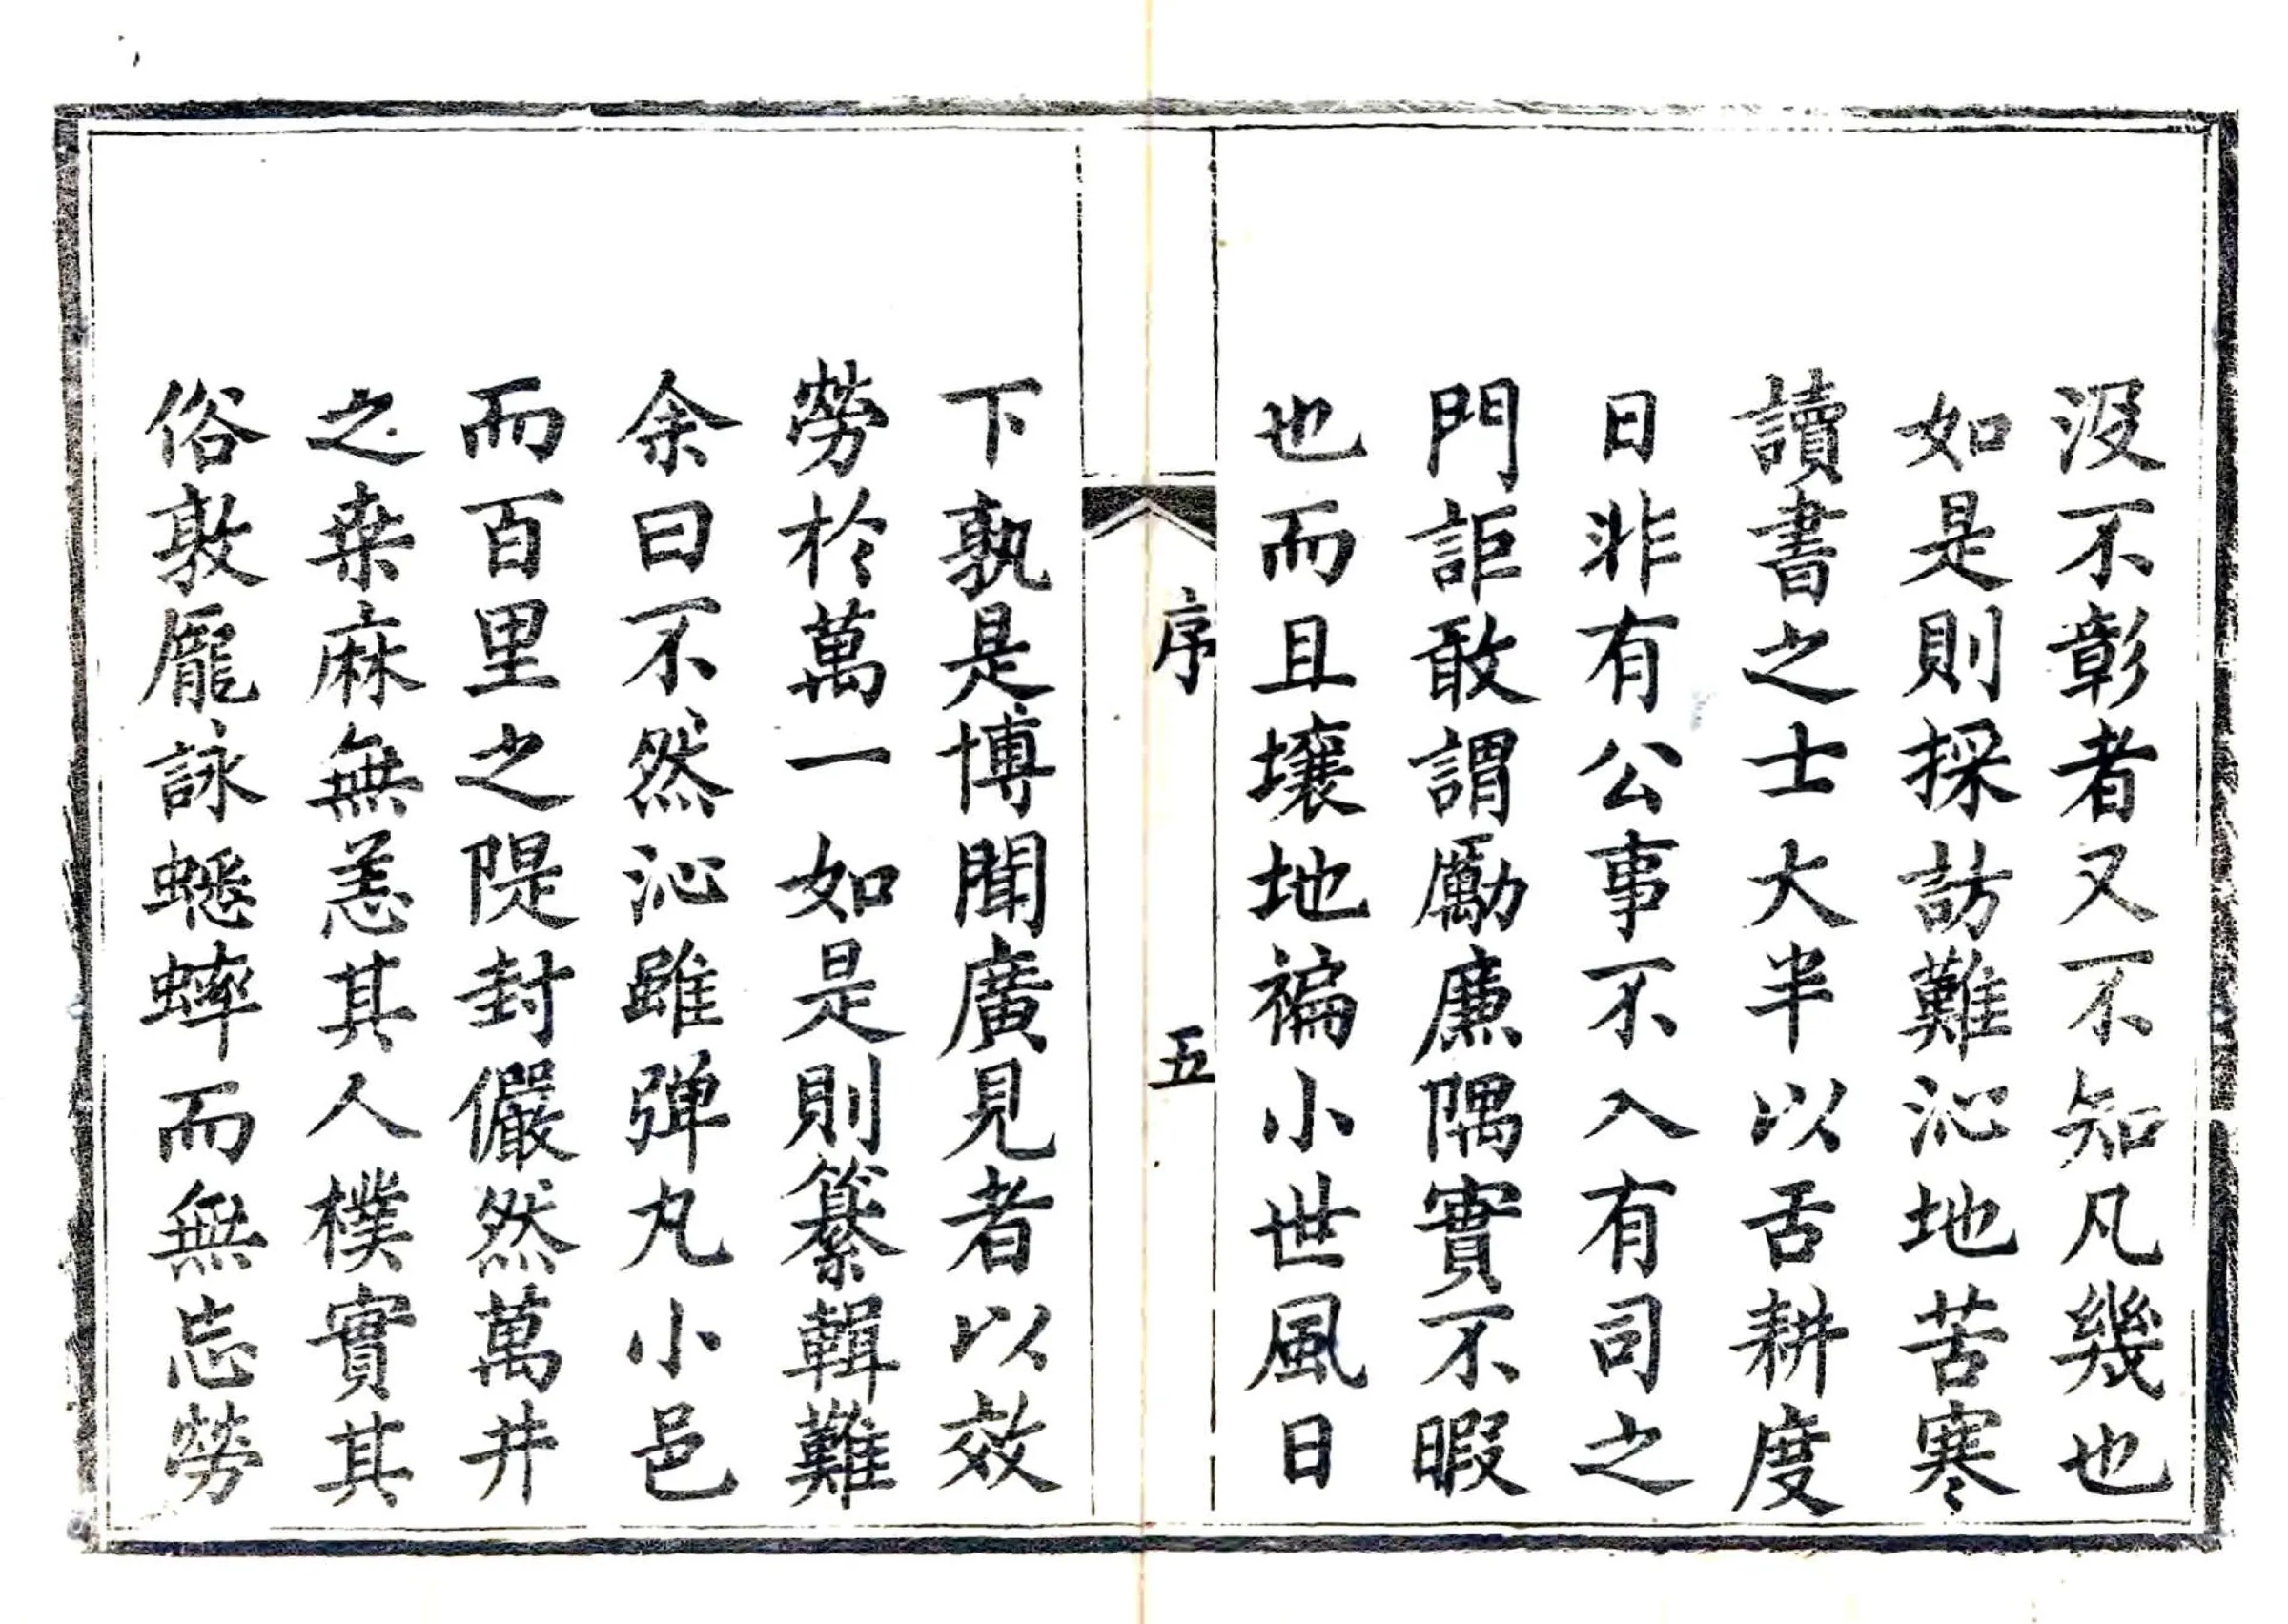 沒不彰者又不知凡幾也
如是則採訪難沁地苦寒
讀書之士大半以舌耕度
日非有公事不入有司之
門詎敢謂勵廉隅實不暇
也而且壤地褊小世風日
序 五
下孰是博聞廣見者以效
勞於萬一如是則纂輯難
余曰不然沁雖弹丸小邑
而百里之隄封儼然萬井
之桒麻無恙其人樸實其
俗敦龐詠蟋蟀而無忘勞